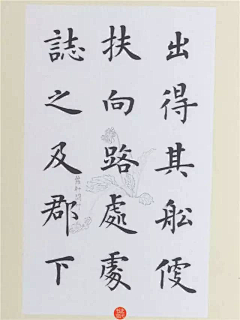 出得其舩便
扶向路處處
誌之及郡下